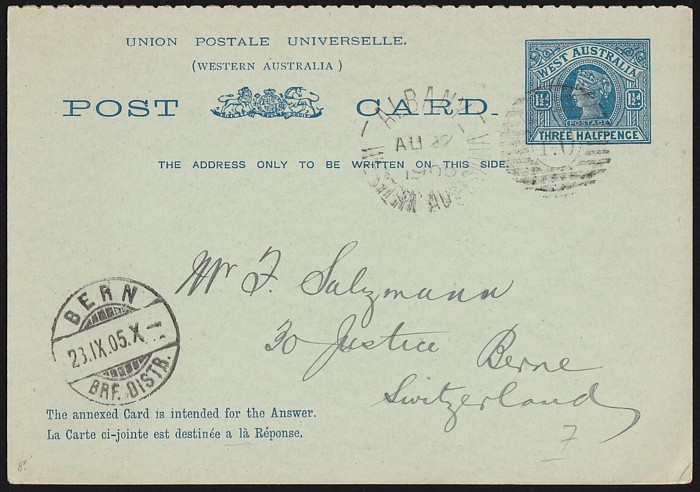 UNION POSTALE UNIVERSELLE.
(WESTERN AUSTRALIA)
POST CARD.
THE ADDRESS ONLY TO BE WRITTEN ON THIS SIDE.
WEST AUSTRALIA
1½D 1½D
POSTAGE
THREE HALFPENCE
ALBANY
AU 22
WESTERN AUSTRALIA
Mr F. Salzmann
30 Justice Berne
Switzerland
7
BERN
23.IX.05.X
BRF. DISTR.
The annexed Card is intended for the Answer.
La Carte ci-jointe est destinée a là Réponse.